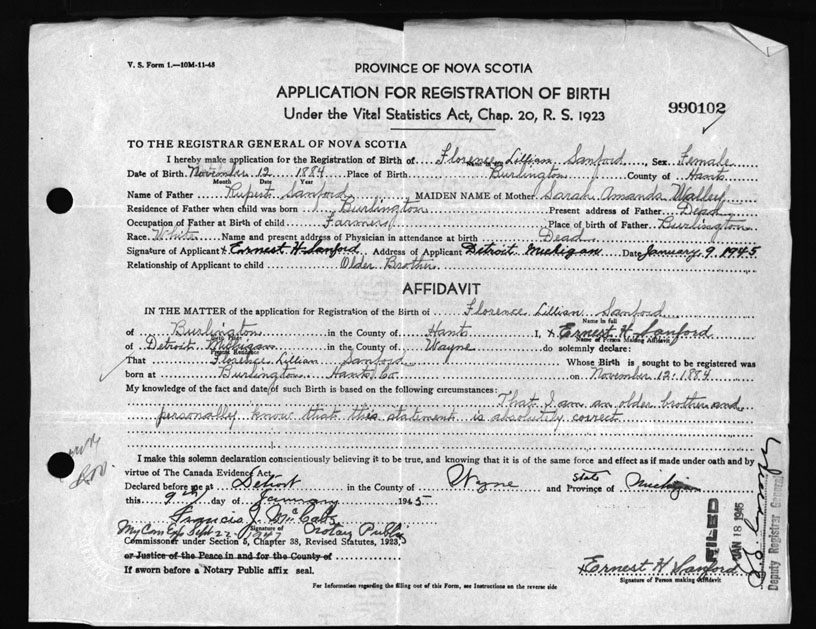 V. S. Form 1.—10M-11-43
PROVINCE OF NOVA SCOTIA
APPLICATION FOR REGISTRATION OF BIRTH
Under the Vital Statistics Act, Chap. 20, R. S. 1923
990102
TO THE REGISTRAR GENERAL OF NOVA SCOTIA
I hereby make application for the Registration of Birth of Florence Lillian Sanford, Sex Female
Date of Birth November 12 1884 Place of Birth Burlington County of Hants
Month Date Year
Name of Father Rupert Sanford MAIDEN NAME of Mother Sarah Amanda
Residence of Father when child was born Burlington Present address of Father Dead
Occupation of Father at Birth of child Farmer Place of birth of Father Burlington
Race White Name and present address of Physician in attendance at birth Dead
Signature of Applicant X Ernest H Sanford Address of Applicant Detroit Michigan Date January 9 1945
Relationship of Applicant to child Older Brother
AFFIDAVIT
IN THE MATTER of the application for Registration of the Birth of Florence Lillian Sanford
Name in full
of Burlington in the County of Hants I, X Ernest H Sanford
Birth Place Name of Person Making Affidavit
of Detroit Michigan in the County of Wayne do solemnly declare:
Present Residence
That Florence Lillian Sanford Whose Birth is sought to be registered was
born at Burlington Hants Co on November 12-1884
My knowledge of the fact and date of such Birth is based on the following circumstances:
That I am an older brother and
personally know that this statement is absolutely correct
I make this solemn declaration conscientiously believing it to be true, and knowing that it is of the same force and effect as if made under oath and by
virtue of The Canada Evidence Act.
Declared before me at Detroit in the County of Wayne State and Province of Michigan
this 9th day of January 1945
Francis J.
Signature of
My Com Exp Sept 22 1947 Notary Public
Commissioner under Section 5, Chapter 38, Revised Statutes, 1923,
or Justice of the Peace in and for the County of
If sworn before a Notary Public affix seal.
Ernest H Sanford
Signature of Person making Affidavit
For Information regarding the filling out of this Form, see Instructions on the reverse side
FILED
JAN 18 1945
Deputy Registrar General